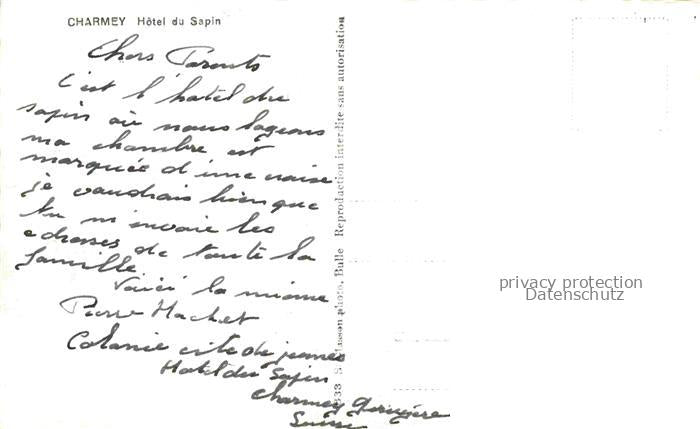 CHARMEY Hôtel du Sapin
Chers Parents
C'est l'hotel du
sapin où nous logeons
ma chambre est
marquée d'une croise
je voudrais bien que
tu m'envoie les
adresses de toute la
famille.
Voici la mienne
Pierre Machet
Colonie cité de jeunes
Hotel du Sapin
Charmey Gruyère
Suisse
333 S. Glasson photo, Bulle Reproduction interdite sans autorisation
privacy protection
Datenschutz